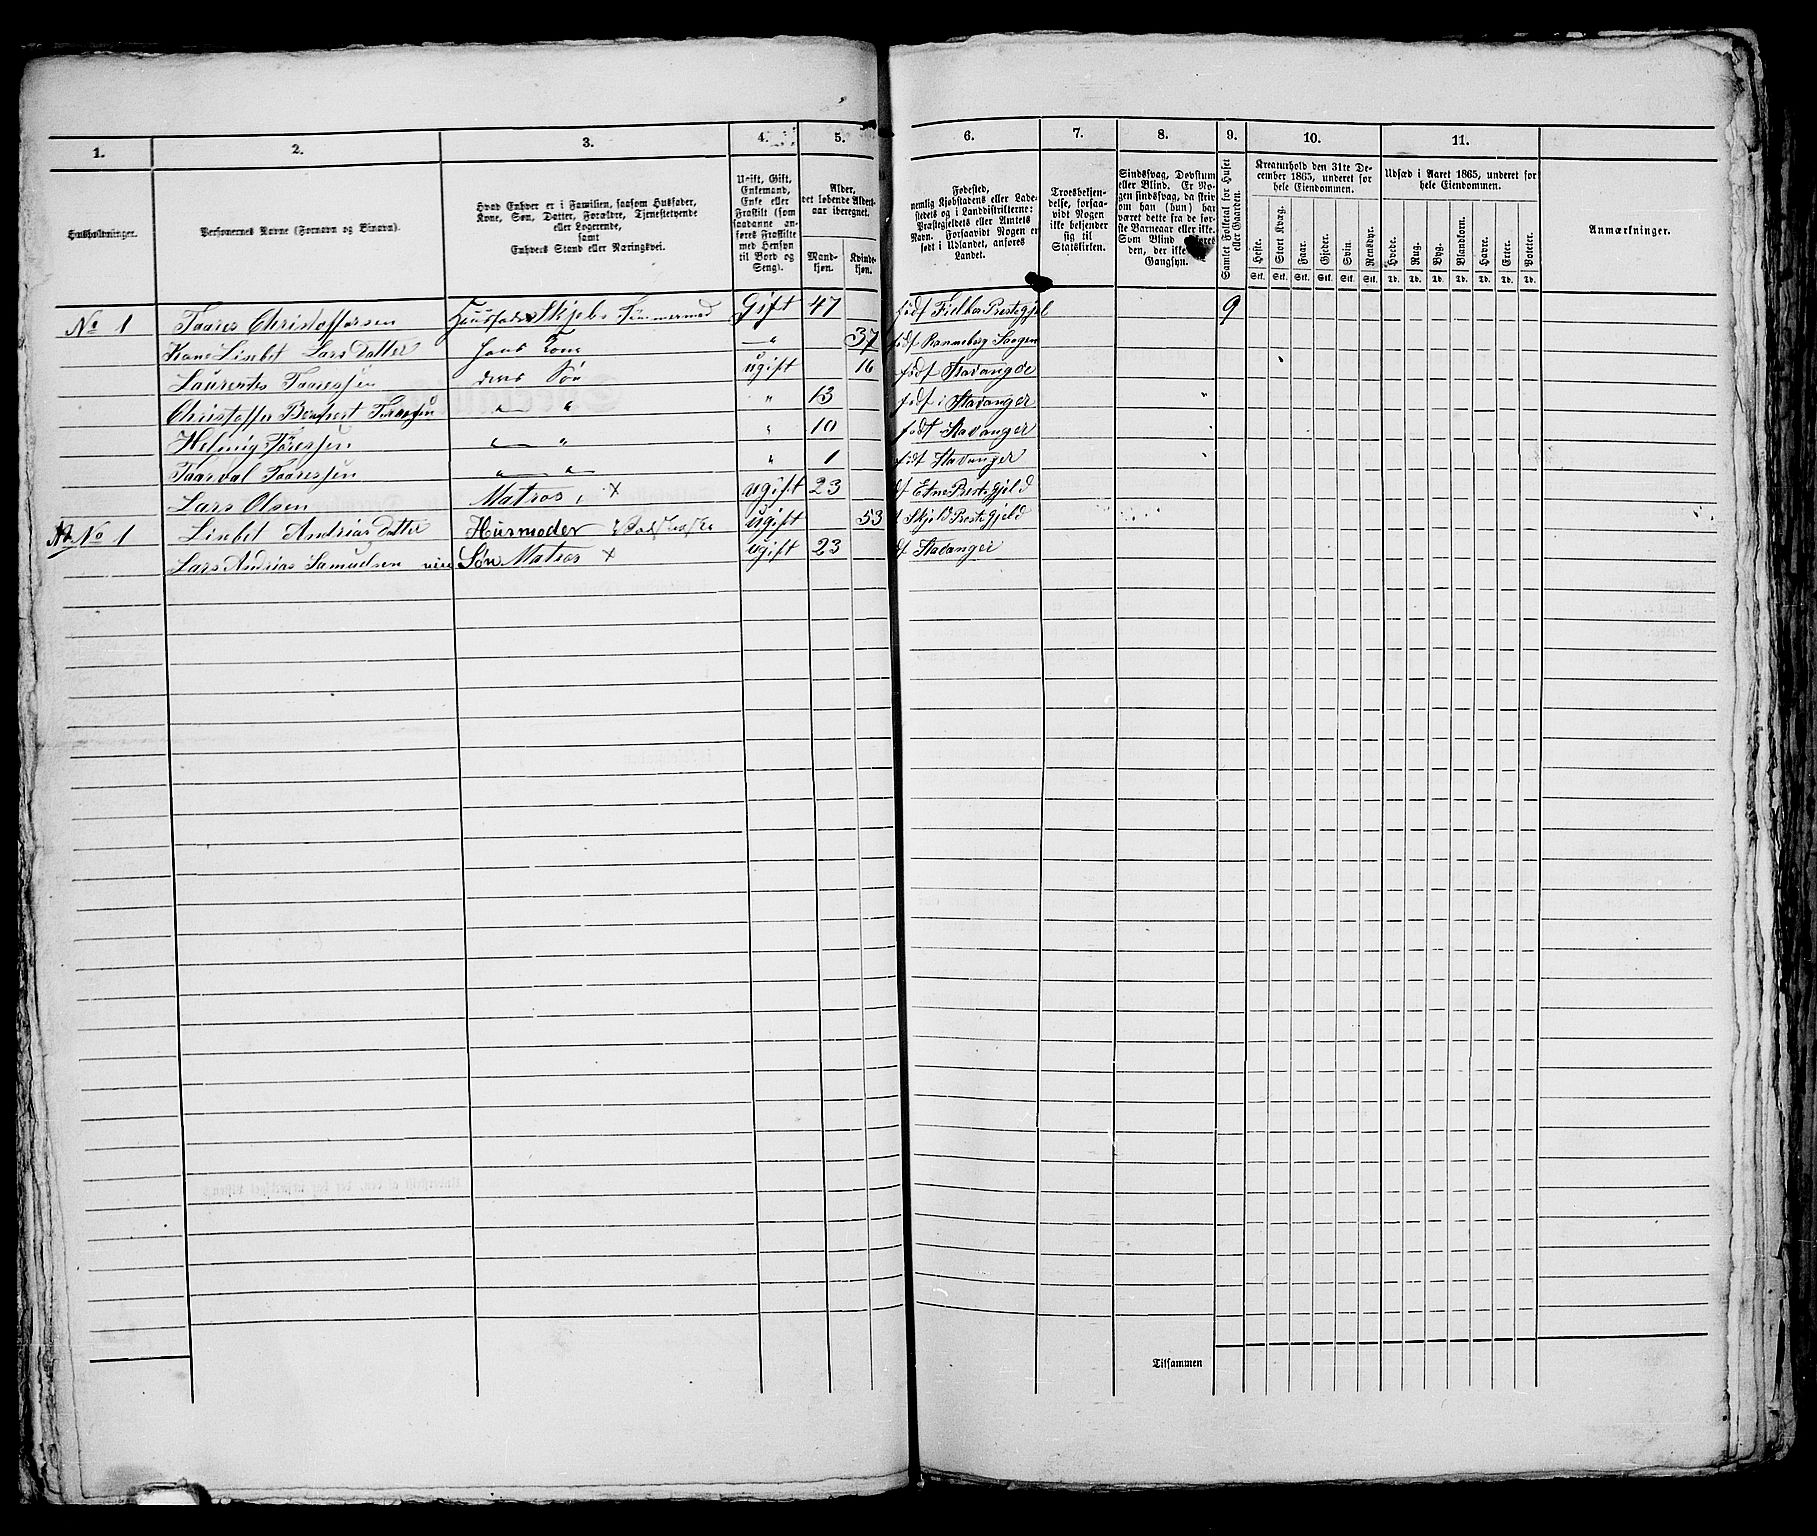 1. 2. 3. 4. 5. 6. 7. 8. 9. 10. 11.
Husholdninger.
Personernes Navne (Fornavn og Binavn).
Hvad Enhver er i Familien, saasom Husfader,
Kone, Søn, Datter, Forældre, Tjenestetyende
eller Logerende,
samt
Enhvers Stand eller Næringsvei.
Ugift, Gift,
Enkemand,
Enke eller
Fraskilt (som
saadanne an-
føres Fraskilte
med Hensyn
til Bord og
Seng).
Alder,
det løbende Alders-
aar iberegnet.
Mand-
kjøn.
Kvinde-
kjøn.
Fødested,
nemlig Kjøbstadens eller Lade-
stedets og i Landdistrikterne:
Præstegjeldets eller Amtets
Navn. Forsaavidt Nogen er
født i Udlandet, anføres
Landet.
Troesbekjen-
delse, forsaa-
vidt Nogen
ikke bekjender
sig til
Statskirken.
Sindssvag, Døvstum
eller Blind. Er No-
gen sindssvag, da skriv
om han (hun) har
været dette fra de før-
ste Barneaar eller ikke.
Som Blind ansøres
den, der ikke har
Gangsyn.
Samlet Folketal for Huset
eller Gaarden.
Kreaturhold den 31te De-
cember 1865, underet for
hele Eiendommen.
Heste. Stort Kvæg. Faar. Gjeder. Svin. Rensdyr.
Stk. Stk. Stk. Stk. Stk. Stk.
Udsæd i Aaret 1865, underet for
hele Eiendommen.
Hvede. Rug. Byg. Blandkorn. Havre. Erter. Poteter.
Td. Td. Td. Td. Td. Td. Td.
Anmærkninger.
No 1 Taares Christoffersen Huusfader Skjebs Tømmermed Gift 47 født Prestegjel 9
Kone Lisebet Lars Datter Hans Kone — " 37 født Ranneberg Sogen
Laurentes Taaressen deres Søn ugift 16 født Stavange
Christoffer " " " 13 født i Stavanger
Helmig Tøressen " " " 10 født Stavanger
Taarval Taaressen " " " 1 født Stavanger
Lars Olsen Matros, × ugift 23 Etne Prestegjeld
No 1 Lisebet Andrias Datter Husmoder ugift 53 Skjold Prestegjeld
Lars Andrias Samuelsen Søn Matros × ugift 23 Stavanger
Tilsammen